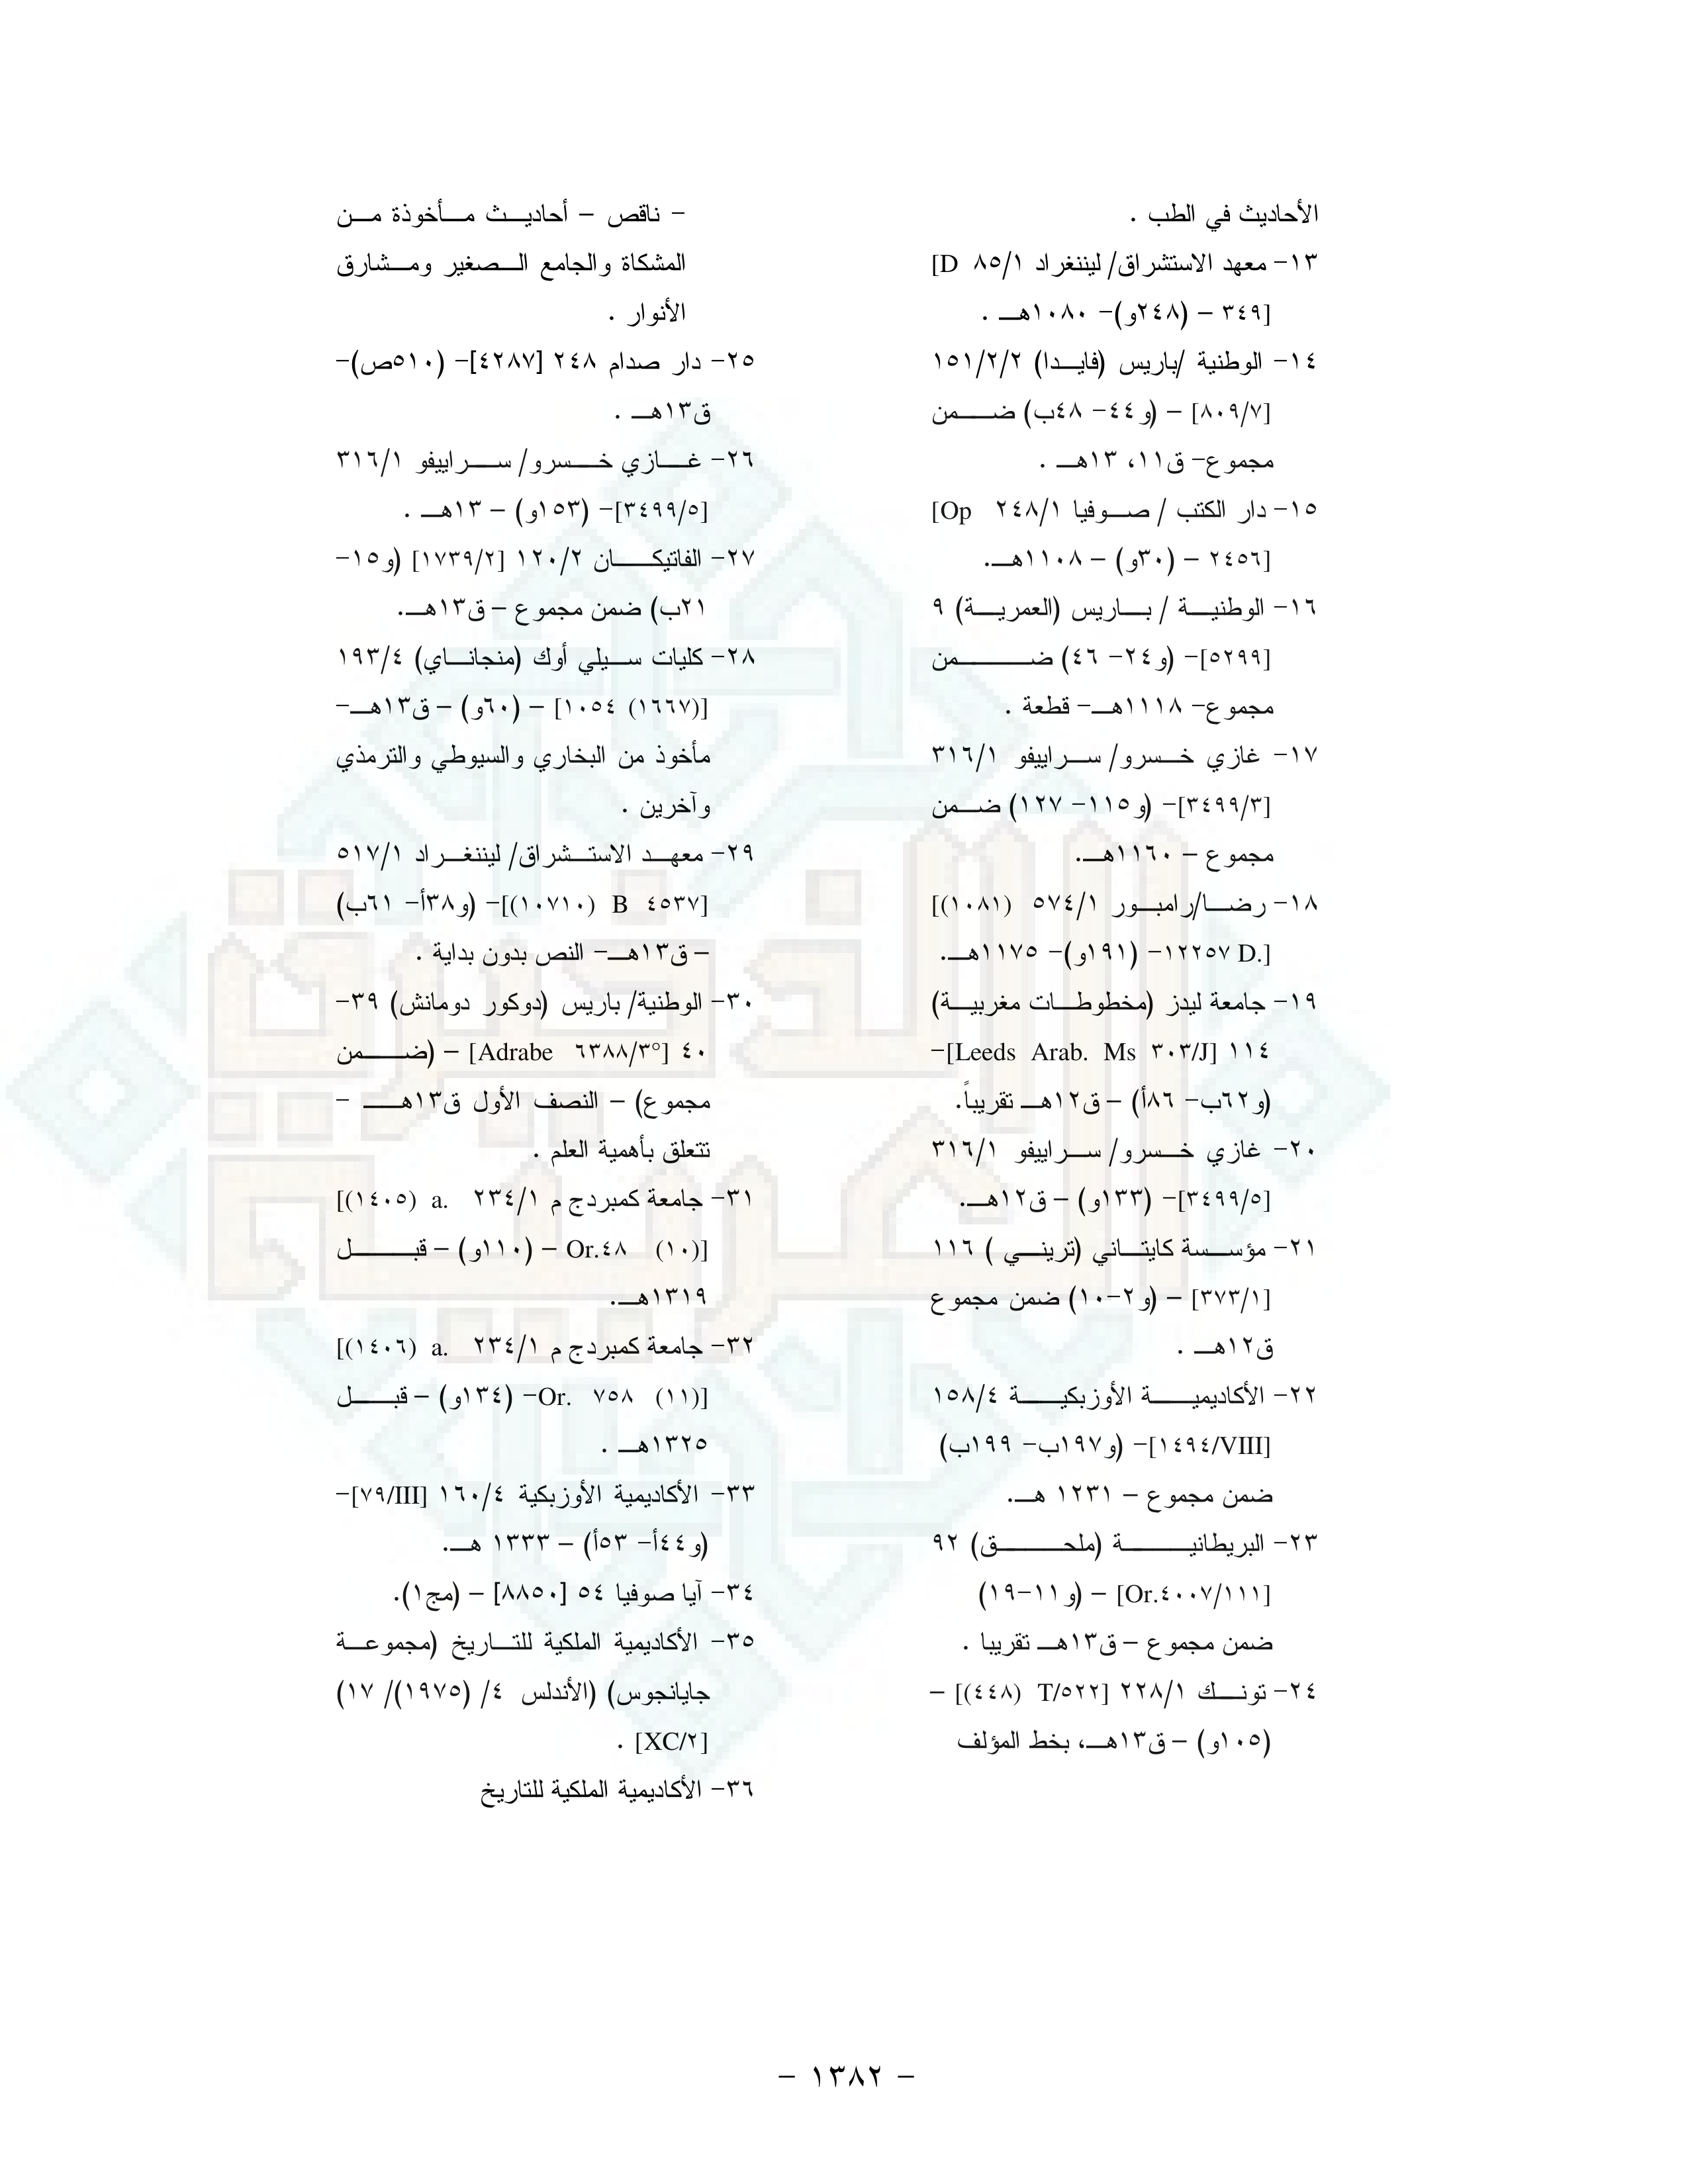 الأحاديث في الطب .
١٣- معهد الاستشراق/ ليننغراد ٨٥/١ [D
٣٤٩] – (٢٤٨و)- ١٠٨٠هـ .
١٤- الوطنية /باريس (فايدا) ١٥١/٢/٢
[٨٠٩/٧] – (و٤٤- ٤٨ب) ضمن
مجموع- ق١١، ١٣هـ .
١٥- دار الكتب / صوفيا ٢٤٨/١ [Op
٢٤٥٦] – (٣٠و) – ١١٠٨هـ.
١٦- الوطنية / باريس (العمرية) ٩
[٥٢٩٩]- (و٢٤- ٤٦) ضمن
مجموع- ١١١٨هـ- قطعة .
١٧- غازي خسرو/ سراييفو ٣١٦/١
[٣٤٩٩/٣]- (و١١٥- ١٢٧) ضمن
مجموع – ١١٦٠هـ.
١٨- رضا/رامبور ٥٧٤/١ [(١٠٨١)
D. ١٢٢٥٧]- (١٩١و)- ١١٧٥هـ.
١٩- جامعة ليدز (مخطوطات مغربية)
١١٤ [Leeds Arab. Ms ٣٠٣/J]-
(و٦٢ب- ٨٦أ) – ق١٢هـ تقريباً.
٢٠- غازي خسرو/ سراييفو ٣١٦/١
[٣٤٩٩/٥]- (١٣٣و) – ق١٢هـ.
٢١- مؤسسة كايتاني (تريني ) ١١٦
[٣٧٣/١] – (و٢-١٠) ضمن مجموع
ق١٢هـ .
٢٢- الأكاديمية الأوزبكية ١٥٨/٤
[١٤٩٤/VIII]- (و١٩٧ب- ١٩٩ب)
ضمن مجموع – ١٢٣١ هـ.
٢٣- البريطانية (ملحق) ٩٢
[Or.٤٠٠٧/١١١] – (و١١-١٩)
ضمن مجموع – ق١٣هـ تقريبا .
٢٤- تونك ٢٢٨/١ [T/٥٢٢ (٤٤٨)] –
(١٠٥و) – ق١٣هـ، بخط المؤلف
- ناقص – أحاديث مأخوذة من
المشكاة والجامع الصغير ومشارق
الأنوار .
٢٥- دار صدام ٢٤٨ [٤٢٨٧]- (٥١٠ص)-
ق١٣هـ .
٢٦- غازي خسرو/ سراييفو ٣١٦/١
[٣٤٩٩/٥]- (١٥٣و) – ١٣هـ .
٢٧- الفاتيكان ١٢٠/٢ [١٧٣٩/٢] (و١٥-
٢١ب) ضمن مجموع – ق١٣هـ.
٢٨- كليات سيلي أوك (منجاناي) ١٩٣/٤
[(١٦٦٧) ١٠٥٤] – (٦٠و) – ق١٣هـ-
مأخوذ من البخاري والسيوطي والترمذي
وآخرين .
٢٩- معهد الاستشراق/ ليننغراد ٥١٧/١
[B ٤٥٣٧ (١٠٧١٠)]- (و٣٨أ- ٦١ب)
– ق١٣هـ- النص بدون بداية .
٣٠- الوطنية/ باريس (دوكور دومانش) ٣٩-
٤٠ [Adrabe ٦٣٨٨/٣°] – (ضمن
مجموع) – النصف الأول ق١٣هـ –
تتعلق بأهمية العلم .
٣١- جامعة كمبردج م ٢٣٤/١ [(١٤٠٥) a.
Or.٤٨ (١٠)] – (١١٠و) – قبل
١٣١٩هـ.
٣٢- جامعة كمبردج م ٢٣٤/١ [(١٤٠٦) a.
Or. ٧٥٨ (١١)]- (١٣٤و) – قبل
١٣٢٥هـ .
٣٣- الأكاديمية الأوزبكية ١٦٠/٤ [٧٩/III]-
(و٤٤أ- ٥٣أ) – ١٣٣٣ هـ.
٣٤- آيا صوفيا ٥٤ [٨٨٥٠] – (مج١).
٣٥- الأكاديمية الملكية للتاريخ (مجموعة
جايانجوس) (الأندلس ٤/ (١٩٧٥)/ ١٧)
[XC/٢] .
٣٦- الأكاديمية الملكية للتاريخ
- ١٣٨٢ -